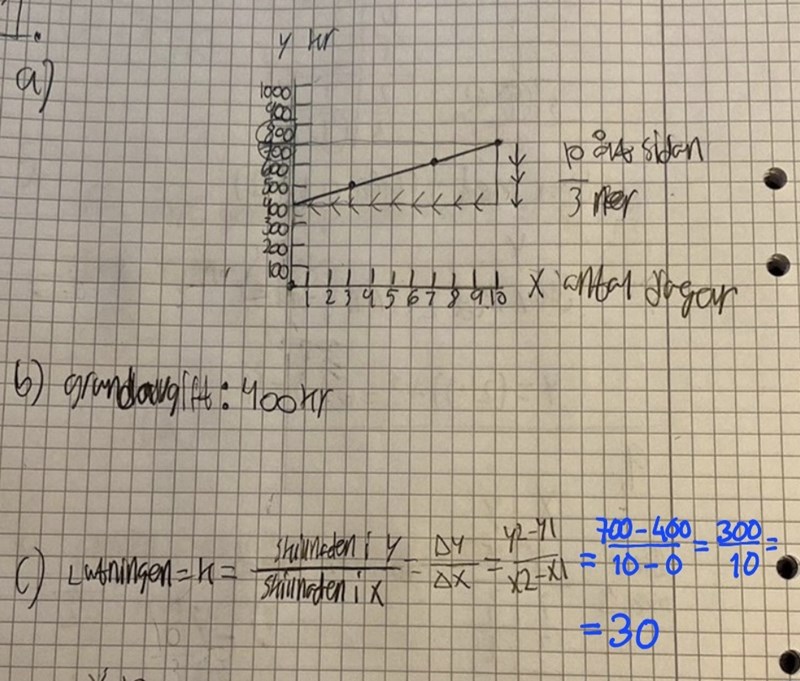 1.
y kr
a)
1000
900
800
700
600
500
400
300
200
100
10 åt sidan
3 ner
1 2 3 4 5 6 7 8 9 10 X antal dagar
b) grundavgift: 400 kr
c) Lutningen = k = skillnaden i y / skillnaden i x = Δy / Δx = y2-y1 / x2-x1 = 700-400 / 10-0 = 300 / 10 =
= 30